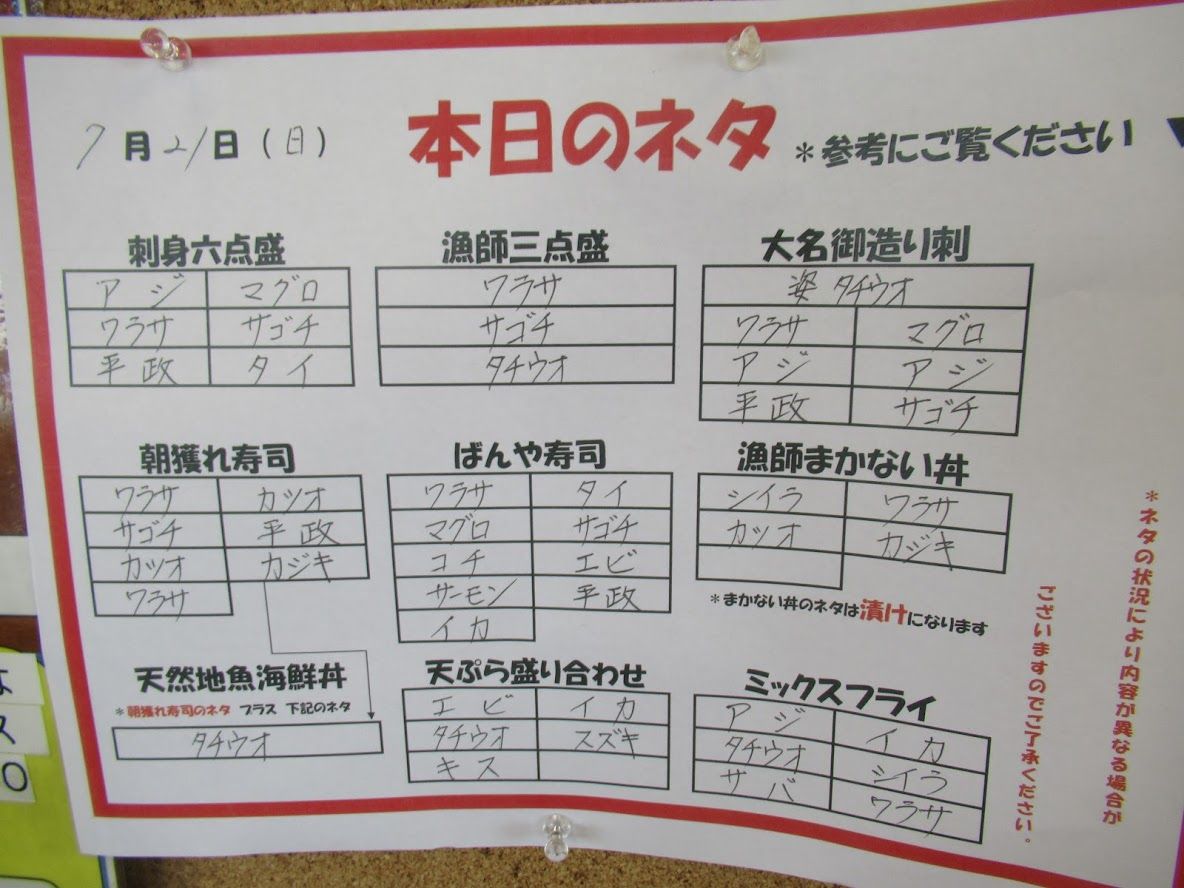 7月21日(日) 本日のネタ *参考にご覧ください
刺身六点盛
アジ マグロ
ワラサ サゴチ
平政 タイ
漁師三点盛
ワラサ
サゴチ
タチウオ
大名御造り刺
姿 タチウオ
ワラサ マグロ
アジ アジ
平政 サゴチ
朝獲れ寿司
ワラサ カツオ
サゴチ 平政
カツオ カジキ
ワラサ
ばんや寿司
ワラサ タイ
マグロ サゴチ
コチ エビ
サーモン 平政
イカ
漁師まかない丼
シイラ ワラサ
カツオ カジキ
*まかない丼のネタは漬けになります
天然地魚海鮮丼
*朝獲れ寿司のネタ プラス 下記のネタ
タチウオ
天ぷら盛り合わせ
エビ イカ
タチウオ スズキ
キス
ミックスフライ
アジ イカ
タチウオ シイラ
サバ ワラサ
*ネタの状況により内容が異なる場合が
ございますのでご了承ください。
ス
0